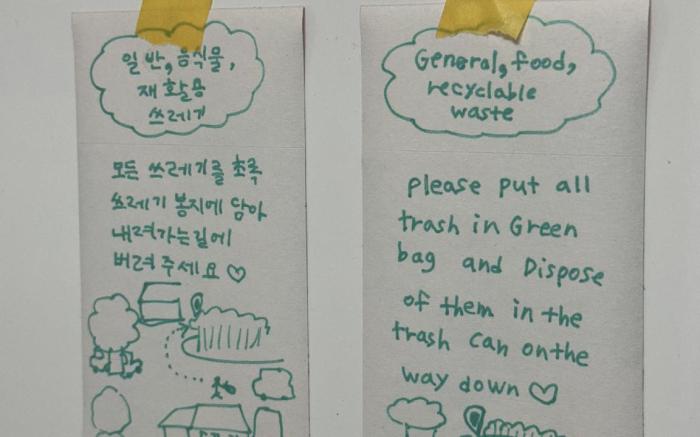 일반, 음식물,
재활용
쓰레기
모든 쓰레기를 초록
쓰레기 봉지에 담아
내려가는길에
버려주세요♡
General, food,
recyclable
waste
please put all
trash in Green
bag and Dispose
of them in the
trash can on the
way down ♡